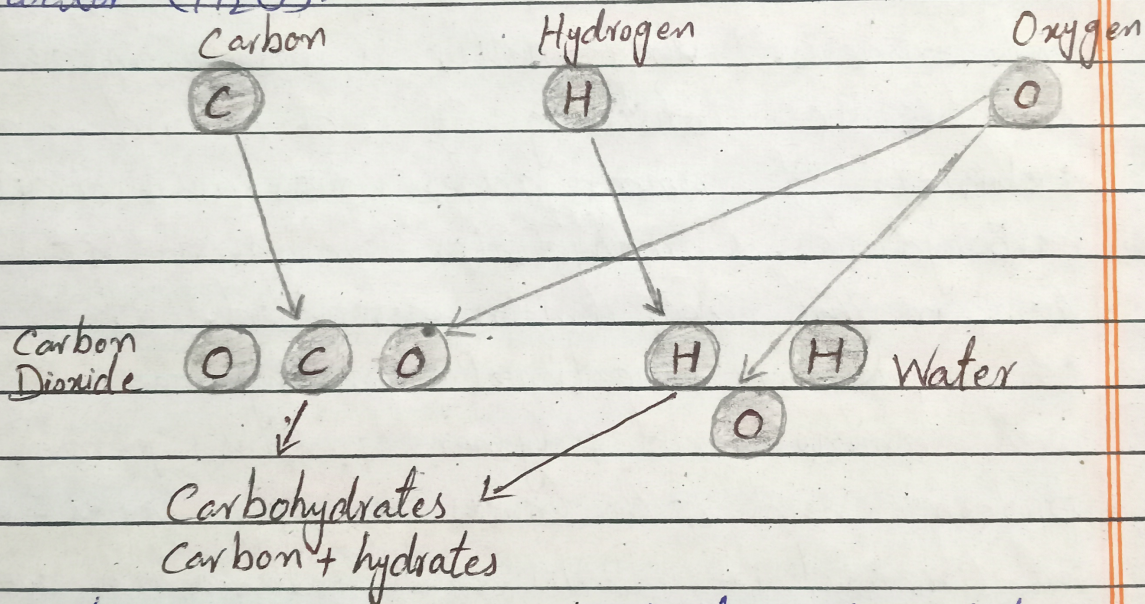 (H2O).
Carbon Hydrogen Oxygen
C H O
Carbon
Dioxide
O C O H H Water
O
Carbohydrates
Carbon + hydrates